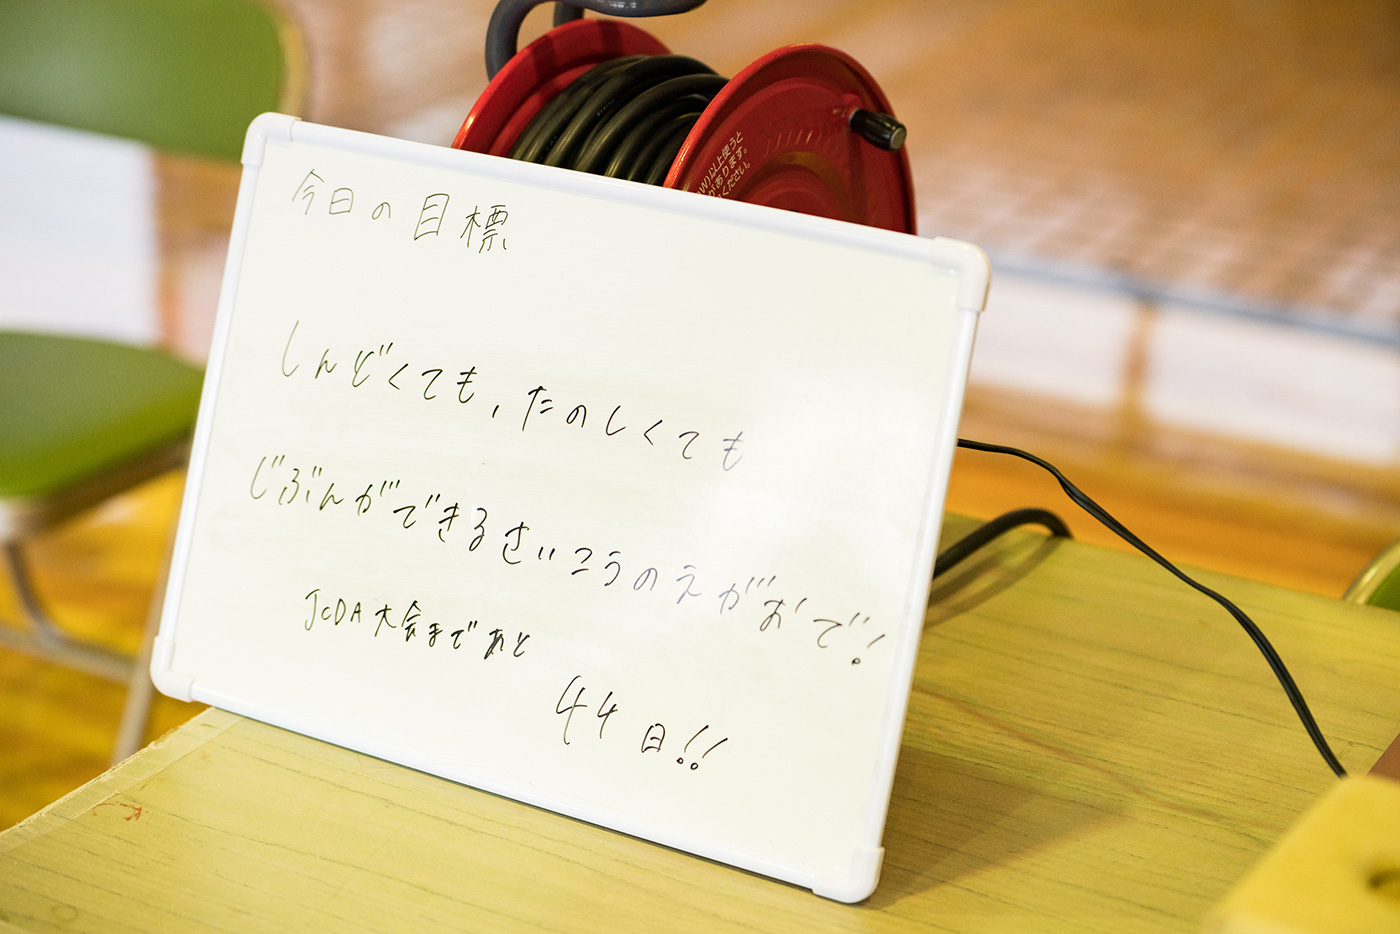 今日の目標
しんどくても、たのしくても
じぶんができるさいこうのえがおで!
JCDA大会まであと
44日!!
W)以上使うと
があります。
ください。